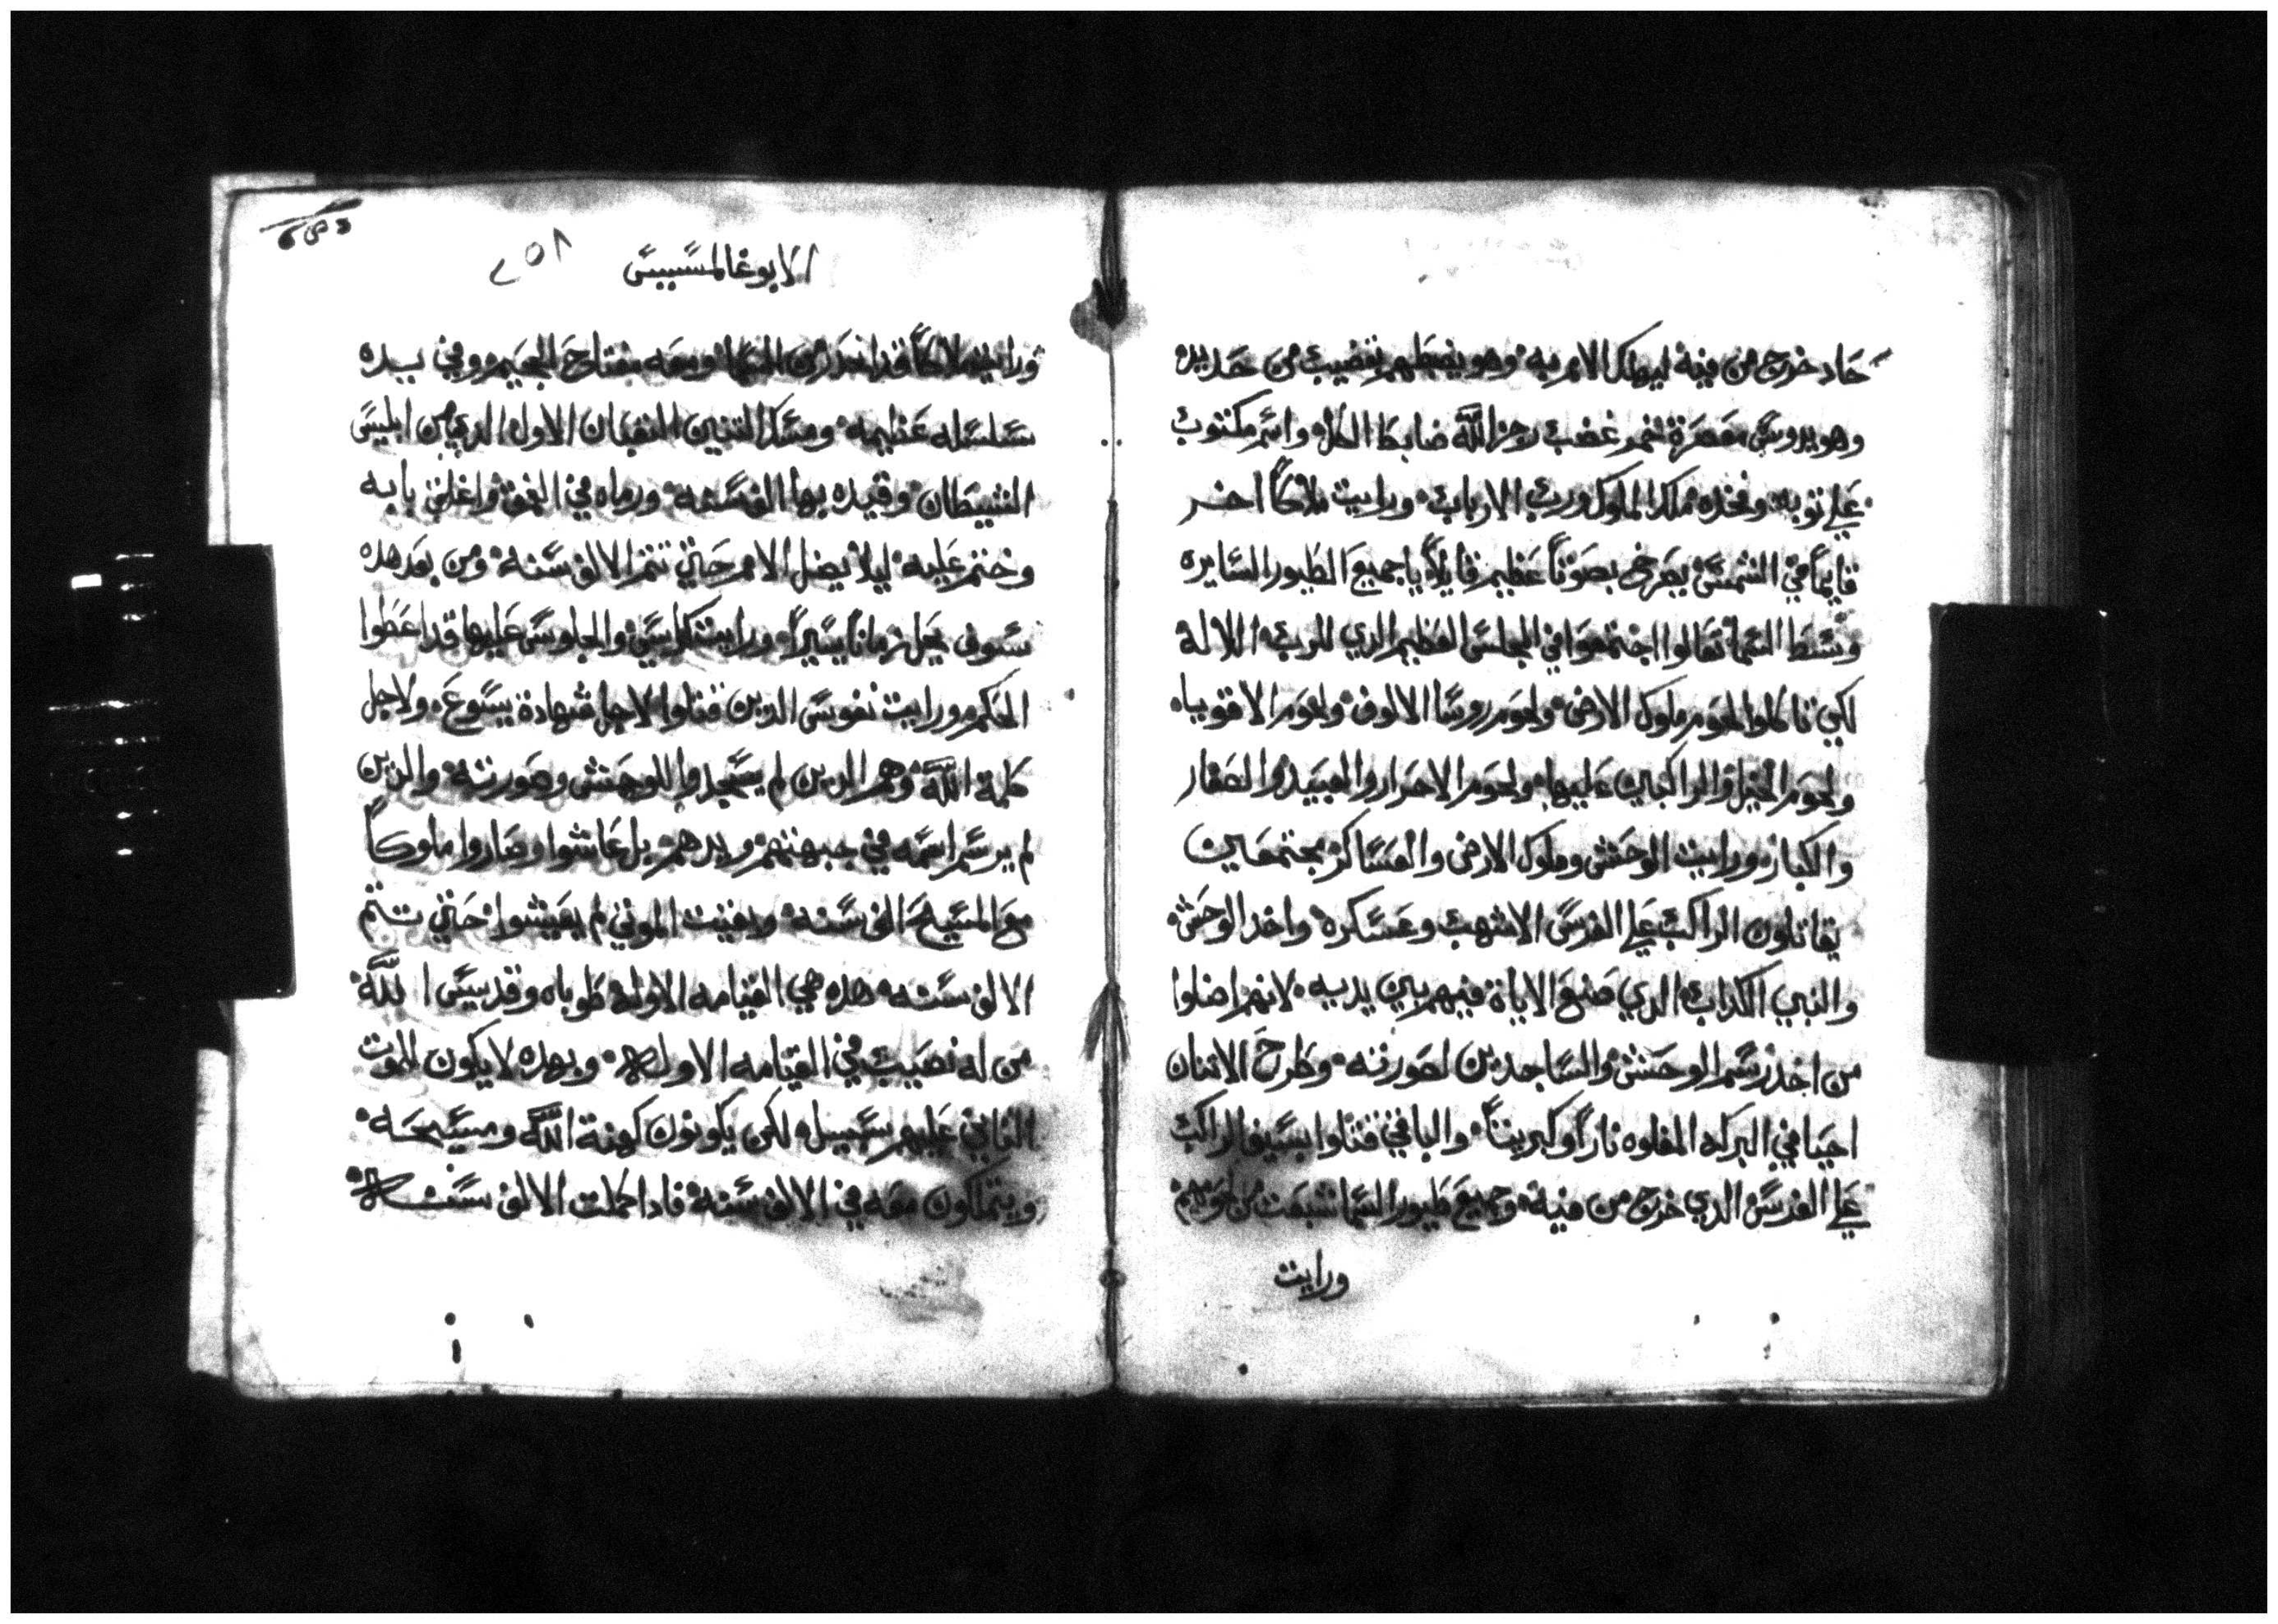 حاد خرج من فيه ليهلك الامم به وهو يضبطهم بقضيب من حديد
وهو يدوس معصرة خمر غضب رجز الله ضابط الكل واسم مكتوب
علي توبه وفخده ملك الملوك ورب الارباب ورايت ملاكاً اخر
قايماً في الشمس يصرخ بصوتاً عظيم قايلاً يا جميع الطيور السايره
وسط السما تعالوا اجتمعوا في المجلس العظيم الدي للرب الاله
لكي تاكلوا لحوم ملوك الارض ولحوم روسا الالوف ولحوم الاقوياء
ولحوم الخيل والراكبين عليها ولحوم الاحرار والعبيد والصغار
والكبار ورايت الوحش وملوك الارض والعساكر مجتمعين
يقاتلون الراكب علي الفرس الاشهب وعسكره واخد الوحش
والنبي الكداب الدي صنع الاياة فيهم بين يديه لانهم اضلوا
من اخد رسم الوحش والساجدين لصورته وطرح الاتنان
احيا في البركه المملوه ناراً وكبريتاً والباقي قتلوا بسيف الراكب
علي الفرس الدي خرج من فيه وجميع طيور السما شبعت من لحومهم
ورايت
الابوغالمسيس ٢٥٨
ورايت ملاكاً قد انحدر من السما ومعه مفتاح الجحيم وفي يده
سلسله عظيمه ومسك التنين التعبان الاول الدي من ابليس
الشيطان وقيده بها الف سنه ورماه في العمق واغلق بابه
وختم عليه ليلا يضل الامم حتي تتم الالف سنه ومن بعد هده
سوف يحل زماناً يسيراً ورايت كراسي والجلوس عليها قد اعطوا
الحكم ورايت نفوس الدين قتلوا لاجل شهادة يسوع ولاجل
كلمة الله وهم الدين لم يسجدوا للوحش وصورته والدين
لم يرسم اسمه في جبهتهم ويدهم بل عاشوا وصاروا ملوكاً
مع المسيح الف سنه وبقيت الموتي لم يعيشوا حتي تتم
الالف سنه هده هي القيامه الاوله طوباه وقديس الله
من له نصيب في القيامه الاوله وبهده لا يكون للموت
التاني عليهم سبيل لكن يكونون كهنة الله ومسيحه
ويتملكون معه في الالف سنه فادا كملت الالف سنه